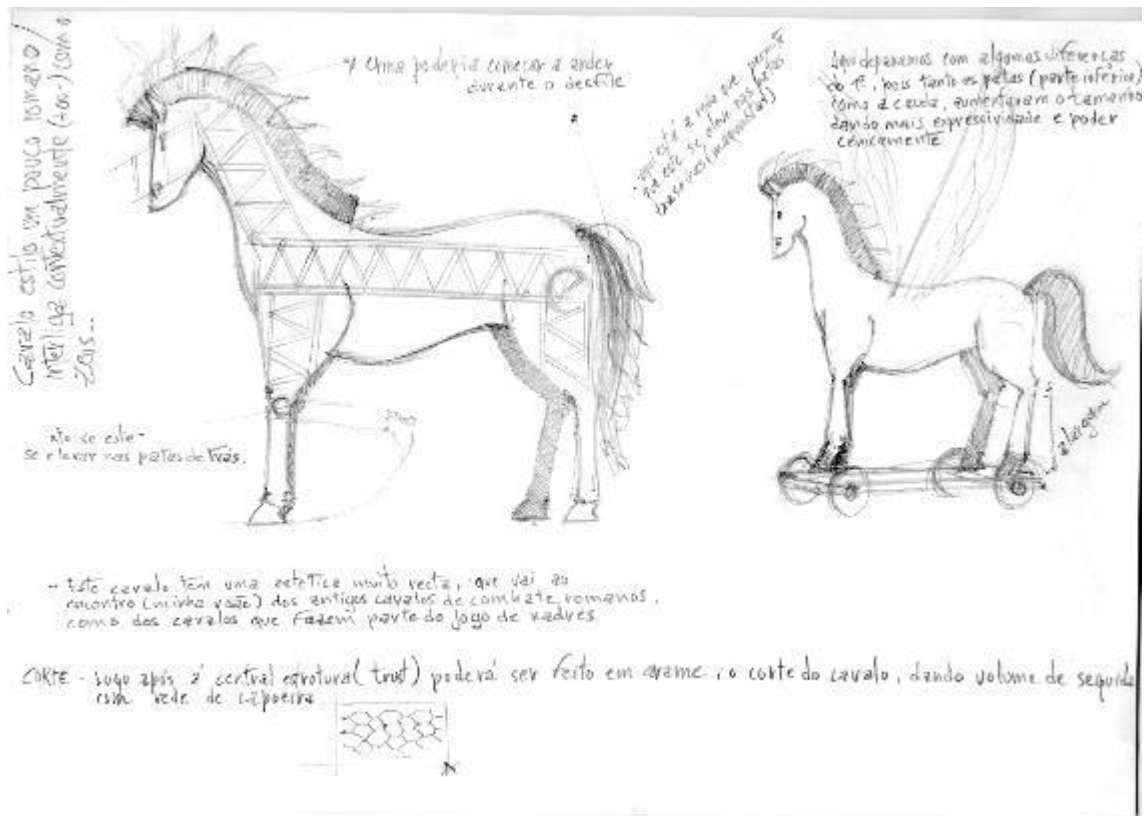 Cavalo estilo um pouco romano /
interliga contextualmente (con-) com o
* Crina poderia começar a arder
durante o desfile
aqui está a roda que permite
Aqui deparamos com algumas diferenças
do 1º, pois tanto as patas (parte inferior)
como a cauda, aumentaram o tamanho
dando mais expressividade e poder
cénicamente
se elevar nas patas de trás.
Este cavalo tem uma estética muito recta, que vai ao
encontro (minha visão) dos antigos cavalos de combate romanos,
como dos cavalos que fazem parte do jogo de xadrês
CORTE - Logo após á central estrutural (trust) poderá ser feito em arame, o corte do cavalo, dando volume de seguida
com rede de capoeira